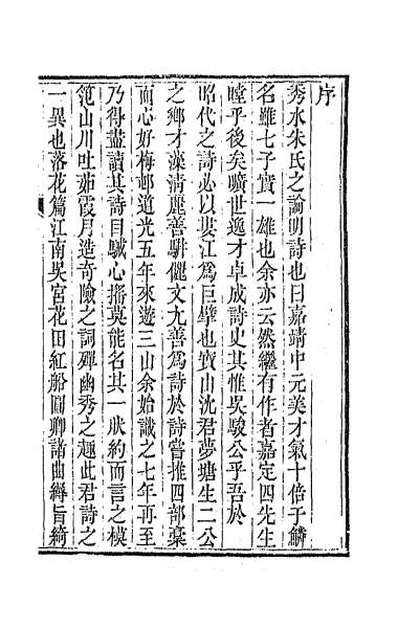 序
秀水朱氏之論明詩也曰嘉靖中元美才氣十倍于鱗
名雖七子實一雄也余亦云然繼有作者嘉定四先生
瞠乎後矣曠世逸才卓成詩史其惟吳駿公乎吾於
昭代之詩必以婁江為巨擘也寶山沈君夢塘生二公
之鄉才藻淸麗善駢儷文尤善為詩於詩嘗推四部稾
而心好梅邨道光五年來遊三山余始識之七年再至
乃得盡讀其詩目駴心搖莫能名其一狀約而言之模
范山川吐茹霞月造奇險之詞殫幽秀之趣此君詩之
一異也落花篇江南吳宮花田紅船圓卿諸曲縟旨綺